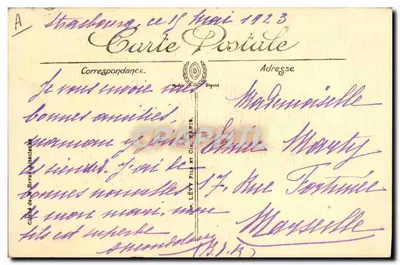 A
Strasbourg ce 15 Mai 1923
Carte Postale
Correspondance
Adresse
Je vous envoie mes
bonnes amitiés
maman y joint
les siennes. J'ai de
bonnes nouvelles
de mon mari, mon
fils est superbe
Mademoiselle
Marty
17 Rue Fortunée
Marseille
LEVY FILS ET CIE, PARIS